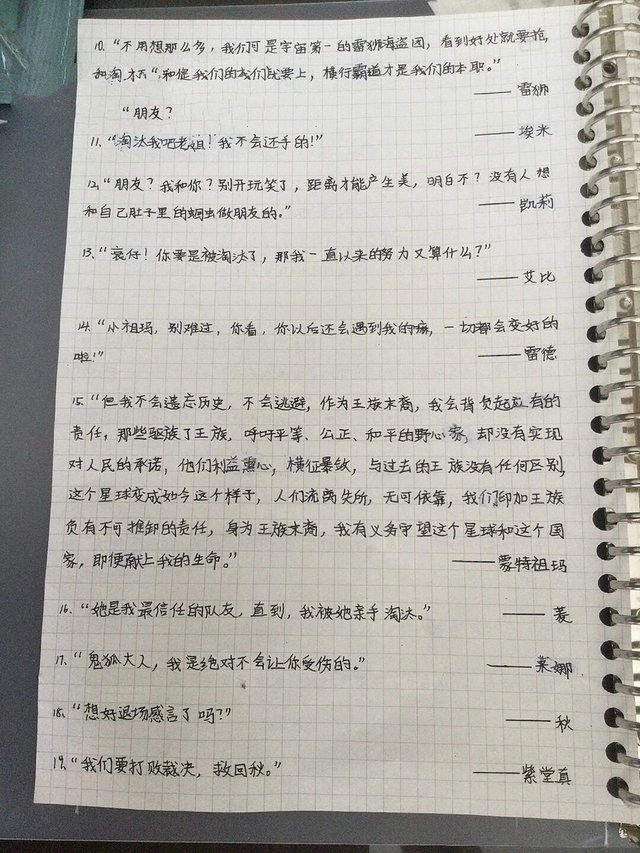 10. “不用想那么多，我们可是宇宙第一的雷狮海盗团，看到好处就要抢，
和淘汰“，和僵我们的我们就要上，横行霸道才是我们的本职。”
—— 雷狮
“朋友？
11. “淘汰我吧老姐！我不会还手的！”
—— 埃米
12. “朋友？我和你？别开玩笑了，距离才能产生美，明白不？没有人想
和自己肚子里的蛔虫做朋友的。”
—— 凯莉
13. “衰仔！你要是被淘汰了，那我一直以来的努力又算什么？”
—— 艾比
14. “小祖玛，别难过，你看，你以后还会遇到我的嘛，一切都会变好的
啦！”
—— 雷德
15. “但我不会遗忘历史，不会逃避，作为王族末裔，我会背负起应有的
责任，那些驱族了王族，呼吁平等、公正、和平的野心家，却没有实现
对人民的承诺，他们利益熏心，横征暴敛，与过去的王族没有任何区别，
这个星球变成如今这个样子，人们流离失所，无可依靠，我们印加王族
负有不可推卸的责任，身为王族末裔，我有义务守望这个星球和这个国
家，即便献上我的生命。”
—— 蒙特祖玛
16. “她是我最信任的队友，直到，我被她亲手淘汰。”
—— 菱
17. “鬼狐大人，我是绝对不会让你受伤的。”
—— 莱娜
18. “想好退场感言了吗？”
—— 秋
19. “我们要打败裁决，救回秋。”
—— 紫堂真